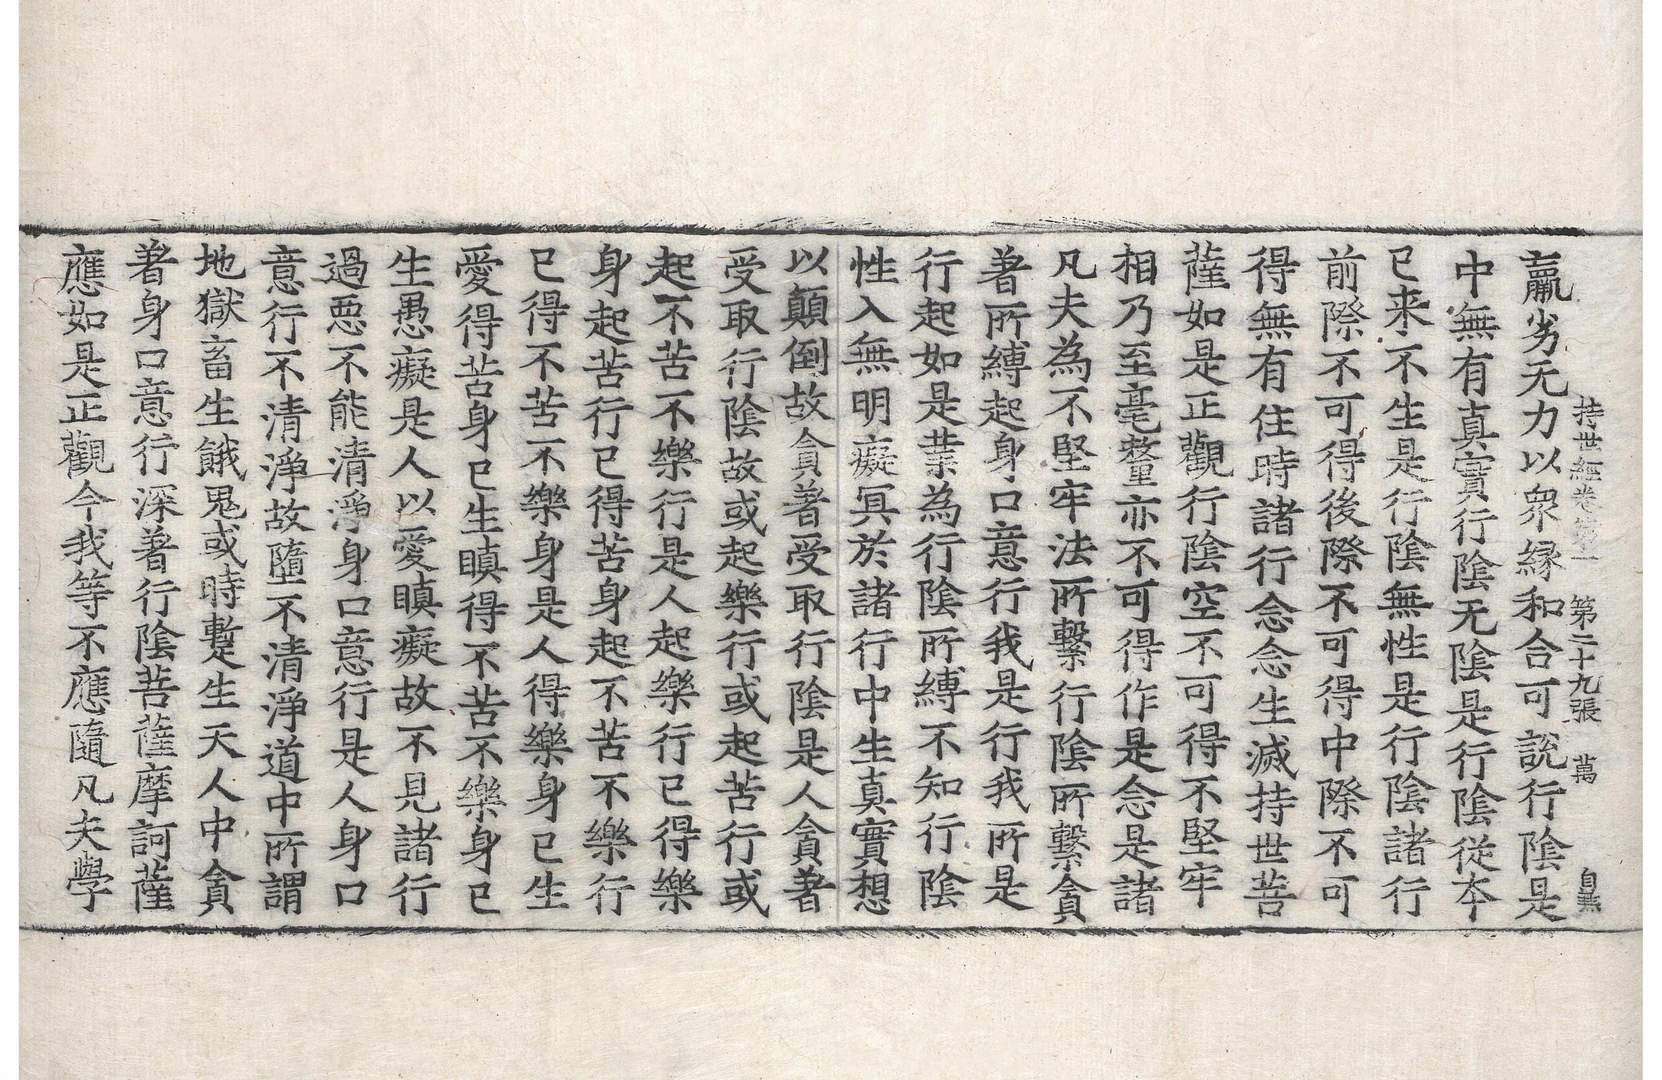 持世經卷第一　第二十九張　萬　自熏
羸劣无力以衆縁和合可說行陰是
中無有真實行陰无陰是行陰從本
已来不生是行陰無性是行陰諸行
前際不可得後際不可得中際不可
得無有住時諸行念念生滅持世菩
薩如是正觀行陰空不可得不堅牢
相乃至毫釐亦不可得作是念是諸
凡夫為不堅牢法所繫行陰所繫貪
著所縛起身口意行我是行我所是
行起如是業為行陰所縛不知行陰
性入無明癡冥於諸行中生真實想
以顛倒故貪著受取行陰是人貪著
受取行陰故或起樂行或起苦行或
起不苦不樂行是人起樂行已得樂
身起苦行已得苦身起不苦不樂行
已得不苦不樂身是人得樂身已生
愛得苦身已生瞋得不苦不樂身已
生愚癡是人以愛瞋癡故不見諸行
過惡不能清淨身口意行是人身口
意行不清淨故墮不清淨道中所謂
地獄畜生餓鬼或時蹔生天人中貪
著身口意行深著行陰菩薩摩訶薩
應如是正觀今我等不應隨凡夫學